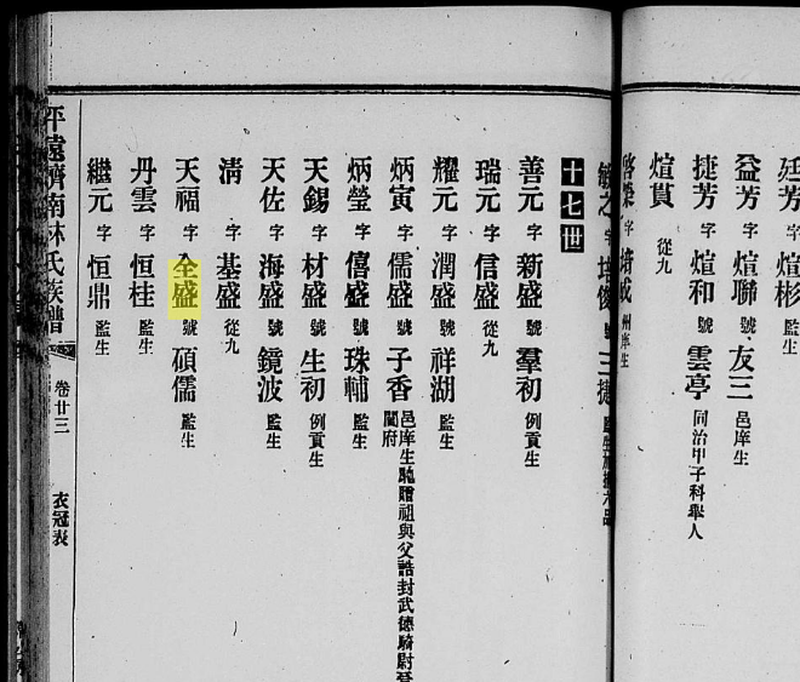 廷芳 字 煊彬 監生
益芳 字 煊聯 號 友三 邑庠生
捷芳 字 煊和 號 雲亭 同治甲子科舉人
煊貰 從九
啓榮 字 培成 州庠生
敏之 字 培俊 號 三捷
十七世
善元 字 新盛 號 羣初 例貢生
瑞元 字 信盛 從九
耀元 字 潤盛 號 祥湖 監生
炳寅 字 儒盛 號 子香 邑庠生 馳贈祖與父誥封武德騎尉晉 閫府
炳瑩 字 僖盛 號 珠輔 監生
天錫 字 材盛 號 生初 例貢生
天佐 字 海盛 號 鏡波 監生
清 字 基盛 從九
天福 字 全盛 號 碩儒 監生
丹雲 字 恒桂 監生
繼元 字 恒鼎 監生
平遠濟南林氏族譜 卷廿三 衣冠表